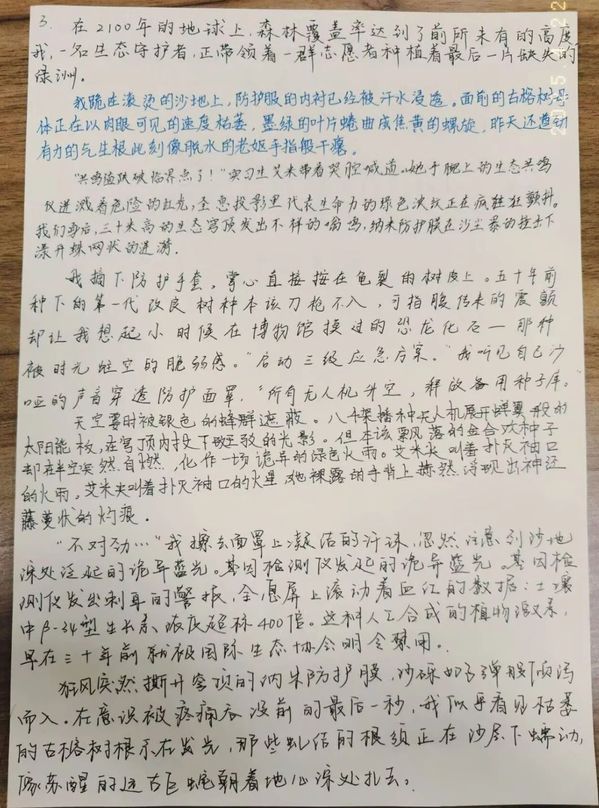 3. 在2100年的地球上，森林覆盖率达到了前所未有的高度
我，一名生态守护者，正带领着一群志愿者种植着最后一片缺失的
绿洲。
我跪在滚烫的沙地上，防护服的内衬已经被汗水浸透。面前的古榕树母
体正在以肉眼可见的速度枯萎，墨绿的叶片蜷曲成焦黄的螺旋，昨天还遒劲
有力的气生根此刻像脱水的老妪手指般干瘪。
"共鸣值跌破临界点了！"实习生艾米带着哭腔喊道。她手腕上的生态共鸣
仪迸溅着危险的红光，全息投影里代表生命力的绿色波纹正在疯狂颤抖。
我们身后，三十米高的生态穹顶发出不祥的嗡鸣，纳米防护膜在沙尘暴的撞击下
漾开蛛网状的涟漪。
我摘下防护手套，掌心直接按在龟裂的树皮上。五十年前
种下的第一代改良树种本该刀枪不入，可指腹传来的震颤
却让我想起小时候在博物馆摸过的恐龙化石—那种
被时光蛀空的脆弱感。"启动三级应急方案。"我听见自己沙
哑的声音穿透防护面罩，"所有无人机升空，释放备用种子库。
天空霎时被银色的蜂群遮蔽。八千架播种无人机展开蝉翼般的
太阳能板，在穹顶内投下细密的光影。但本该飘落的金合欢种子
却在半空突然自燃，化作一场诡异的绿色火雨。艾米尖叫着扑灭袖口
的火雨，艾米尖叫着扑灭袖口的火星，她裸露的手背上赫然浮现出神经
藤蔓状的灼痕。
"不对劲…"我擦去面罩上凝结的汗珠，忽然注意到沙地
深处泛起的诡异蓝光。基因检测仪发起的诡异蓝光。基因检
测仪发出刺耳的警报，全息屏上滚动着血红的数据：土壤
中β-34型生长素浓度超标400倍。这种人工合成的植物激素，
早在三十年前就被国际生态协会明令禁用。
狂风突然撕开穹顶的纳米防护膜，沙砾如子弹般倾泻
而入。在意识被疼痛吞没前的最后一秒，我似乎看见枯萎
的古榕树根系在发光，那些虬结的根须正在沙层下蠕动，
像苏醒的远古巨蛇朝着地心深处扎去。